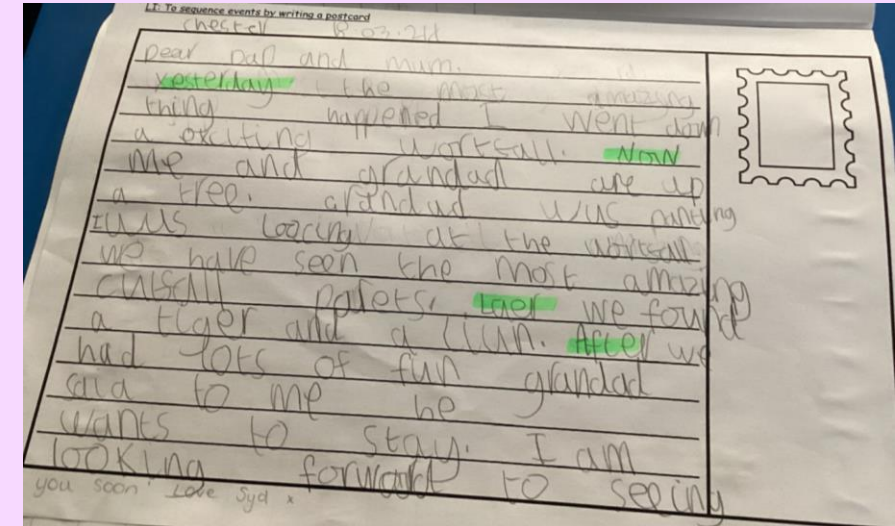 LI: To sequence events by writing a postcard
Chester 18.03.24
Dear Dad and mum.
yesterday the most amazing
thing happened I went down
a exciting wortfall. Now
me and grandad are up
a tree. grandud wus panting
I wus loocing at the wortsall
we have seen the most amazing
culsall parets. Laer we found
a tiger and a liun. After we
had lots of fun grandad
said to me he
wants to stay. I am
looking forword to seeing
you soon Love Syd x